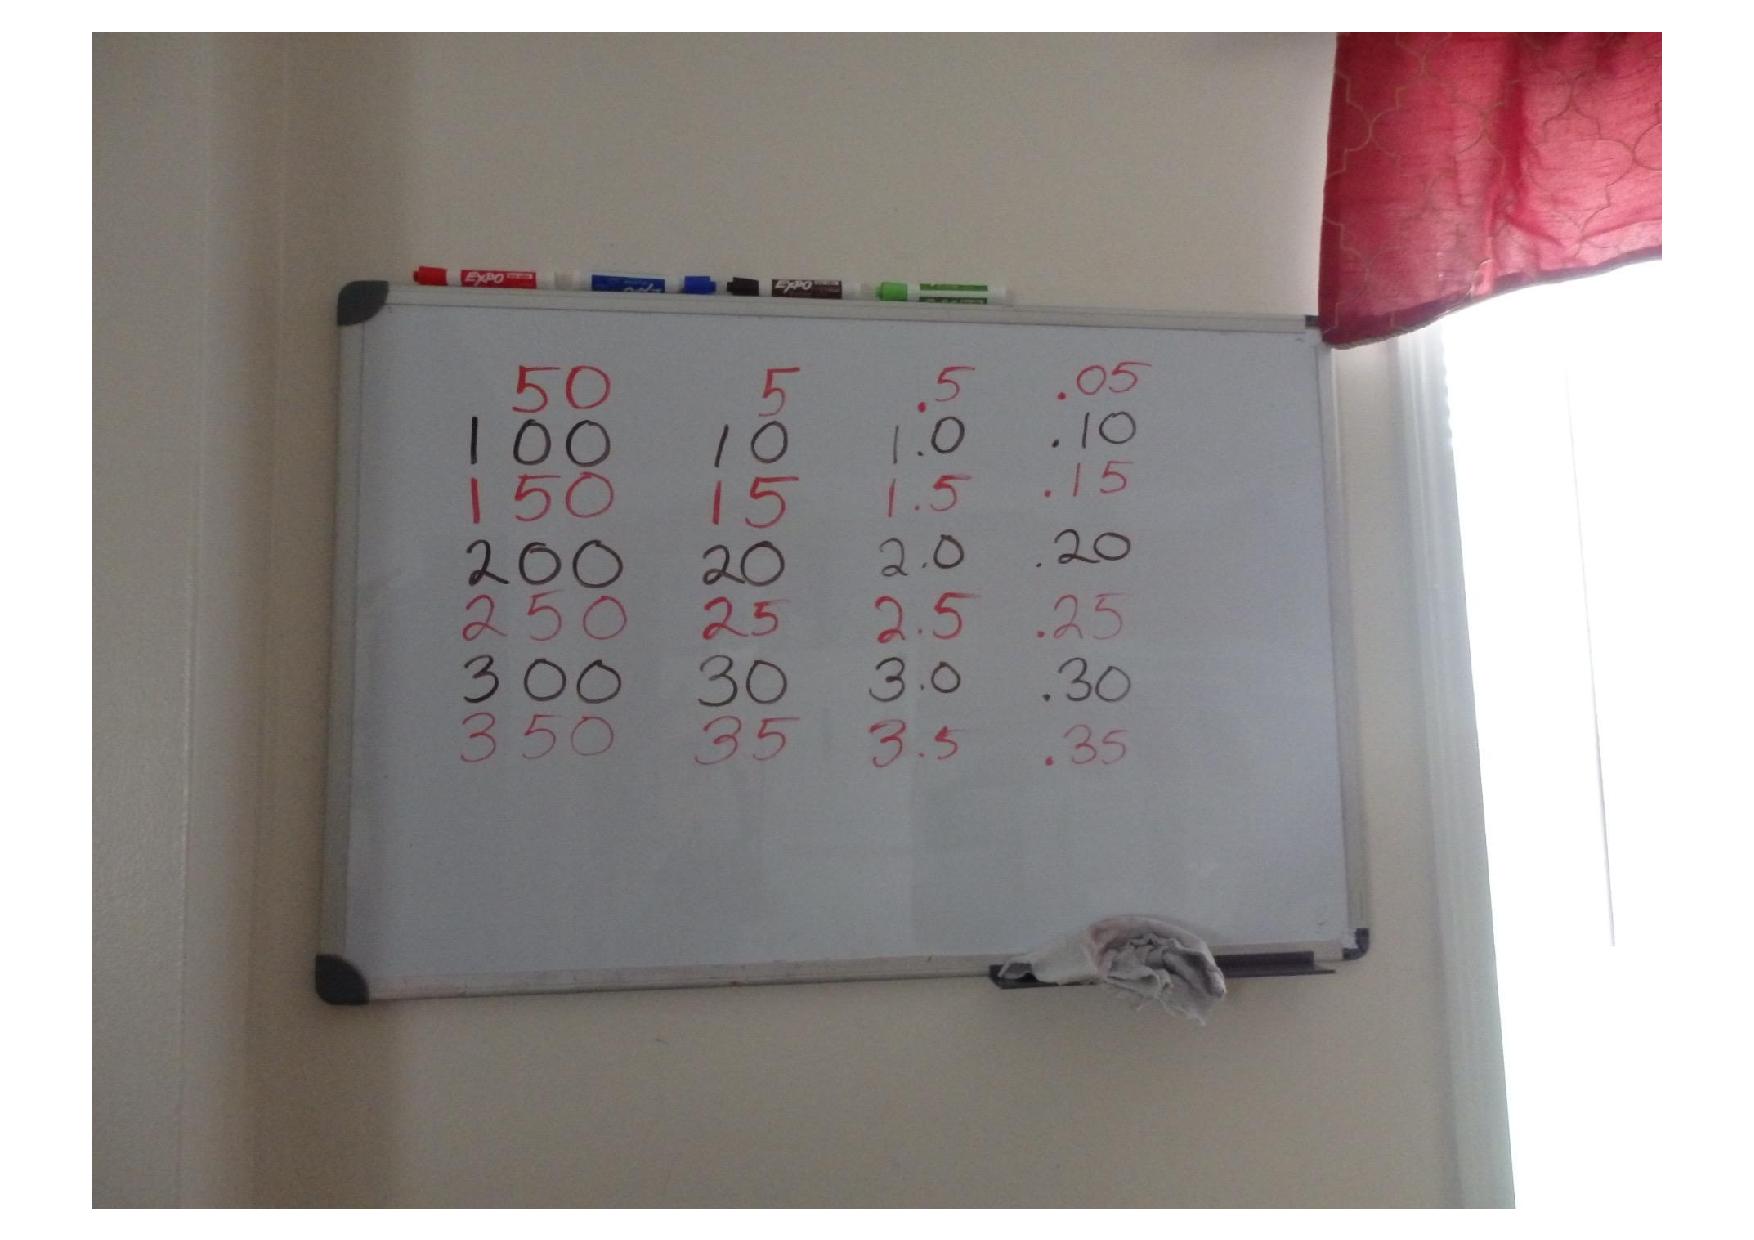 EXPO EXPO EXPO
50 5 .5 .05
100 10 1.0 .10
150 15 1.5 .15
200 20 2.0 .20
250 25 2.5 .25
300 30 3.0 .30
350 35 3.5 .35